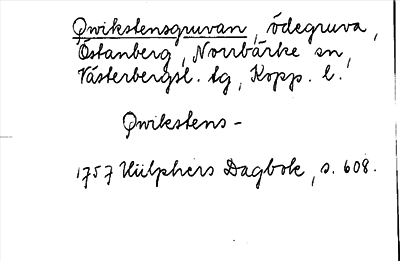 Qwikstensgruvan, ödegruva,
Östanberg, Norrbärke sn,
Västerbergsl. tg, Kopp. l.
Qwikstens-
1757 Hülphers Dagbok, s. 608.